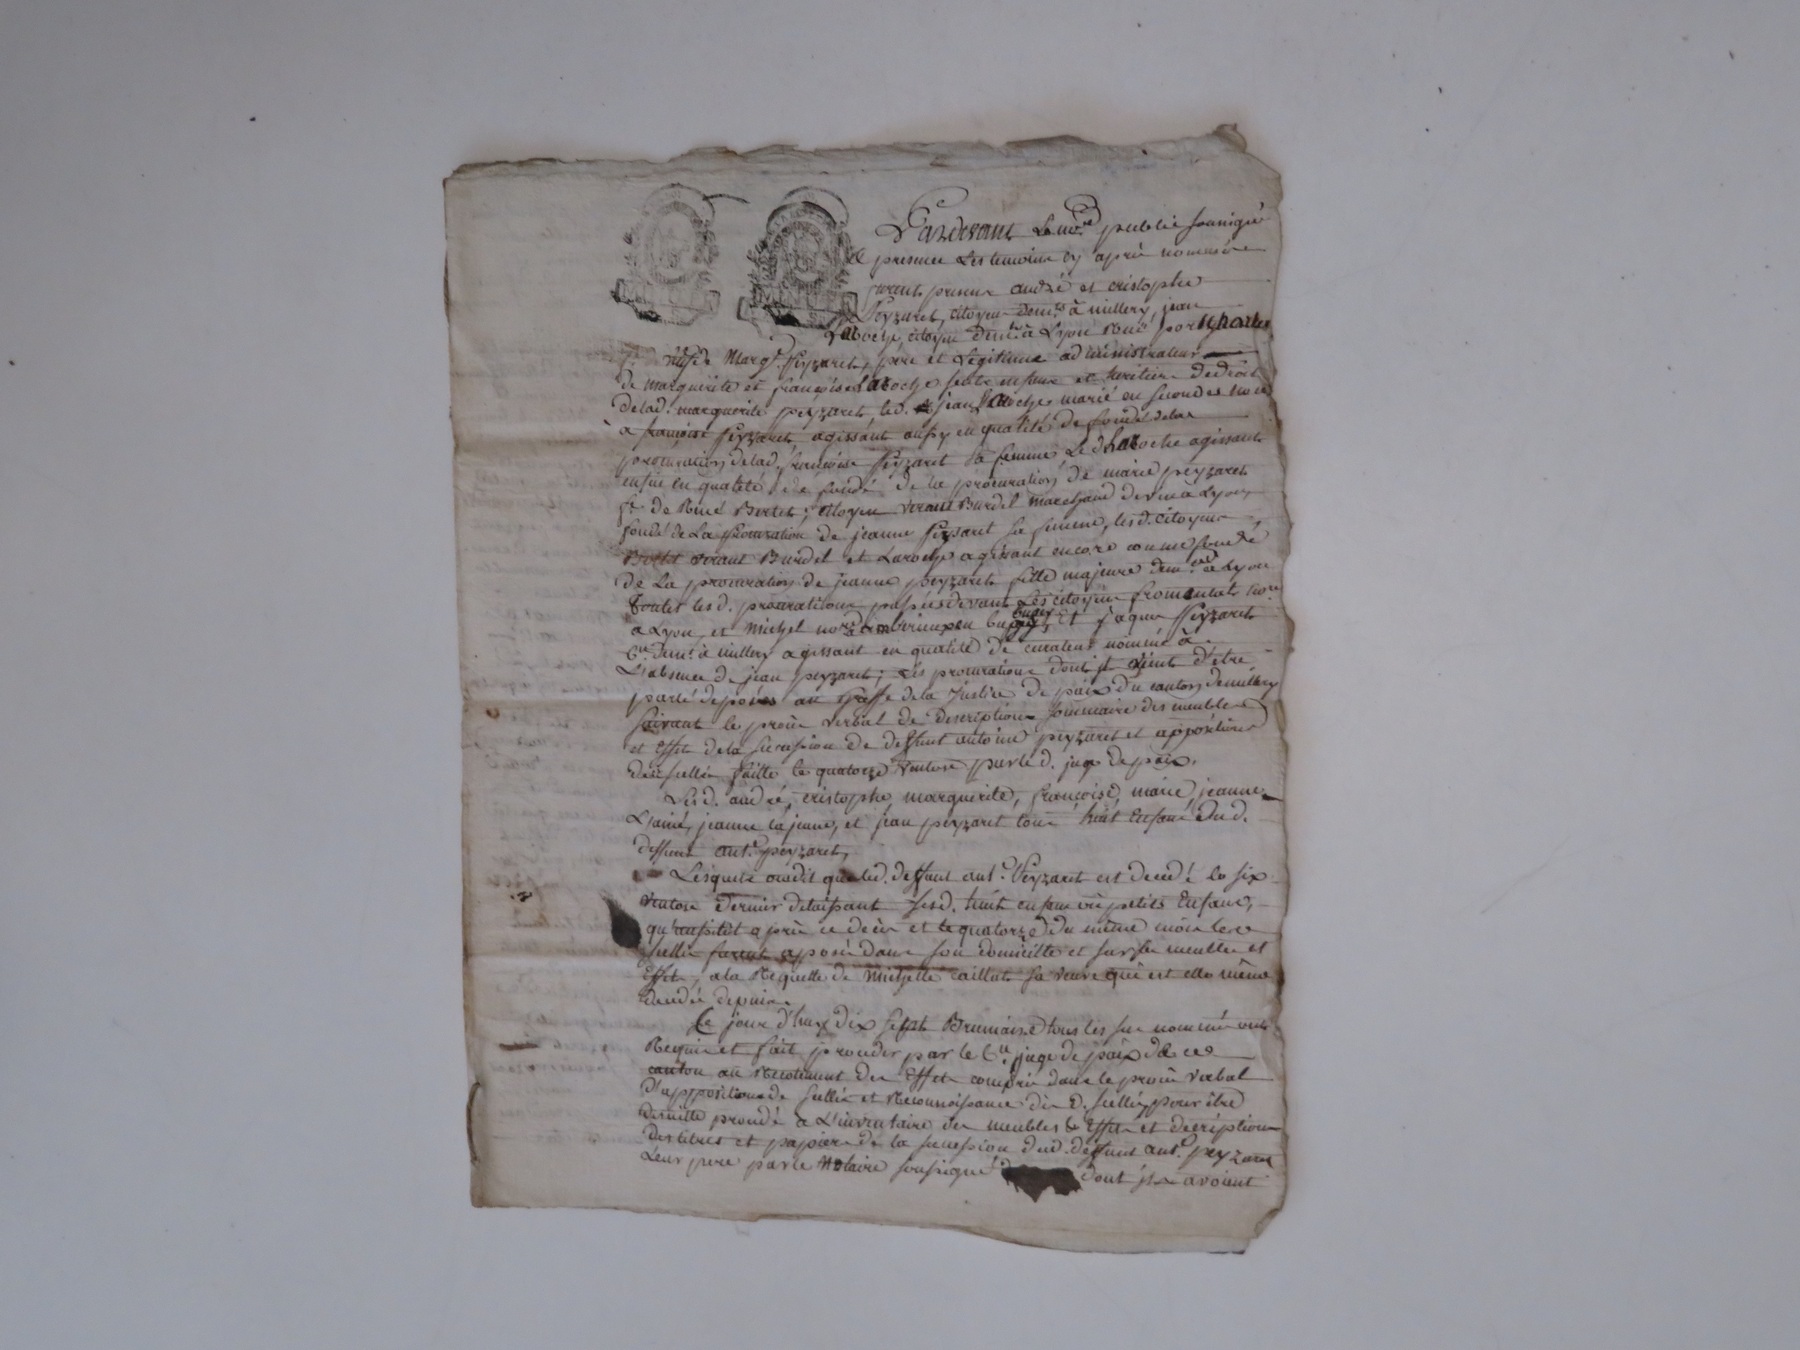 Pardevant Le no.re public soussigné
& presence Les temoins cy après nommés
furent presens andré et cristophe
Peyzaret, citoyens dem.ts à millery, jean
Laroche, citoyen dem.t à Lyon
Marg.te Peyzaret, père et Légitime administrateur
de marguerite et françoise Laroche ses enfans et heritiere de droit
de lad. marguerite peyzaret, led. jean Laroche marié en secondes noces
à françoise Peyzaret, agissant aussy en qualité de fondé de la
procuration de lad. françoise Peyzaret sa femme Led Laroche agissant
enfin en qualité de fondé de la procuration de marie peyzaret
f.e de René Bertet; citoyen verant Burdel marchand de vin à Lyon,
fondé de La procuration de jeanne Peyzaret sa femme, lesd. citoyens
verant Burdel et Laroche agissant encore comme fondé
de La procuration de jeanne peyzaret fille majeure dem.te à Lyon
Toutes lesd. procurations passées devant Les citoyens fromental no.re
a Lyon, et Michel no.re à amberieux en bugey Et jâque Peyzaret
C.en dem.t à millery agissant en qualité de curateur nommé à
L'absence de jean peyzaret; Les procurations dont il vient d'être
parlé deposés au greffe de la Justice de paix du canton de millery
suivant le procès verbal de description sommaire des meubles
et Effets de la succession de deffunt antoine peyzaret et appositions
des scellés faitte le quatorze Ventose par led. juge de paix.
Lesd. andré, cristophe, marguerite, françoise, marie, jeanne
L'ainé, jeanne la jeune, et jean peyzaret tous huit Enfans dud.
deffunt ant.e peyzaret,
Lesquels ont dit que led. deffunt ant.e Peyzaret est decedé le six
ventose dernier delaissant sesd. huit enfans ou petits Enfans,
qu'aussitôt après ce decès et le quatorze du même mois les
scellés furent apposés dans son domicille et sur ses meubles et
Effets, a la Requette de Michelle caillat sa veuve qui est elle même
decedée depuis.
Ce jour d'huy dix sept Brumaire tous les sus nommés ont
Requis et fait proceder par le C.en juge de paix de ce
canton au Recolement des Effets compris dans le procès verbal
d'appositions de scellés et Reconnoissance des d. scellés, pour être
ensuitte procedé à L'inventaire des meubles & Effets et description
des titres et papiers de la succession dud. deffunt ant.e peyzaret
Leur pere par le Notaire soussigné dont ils avoient